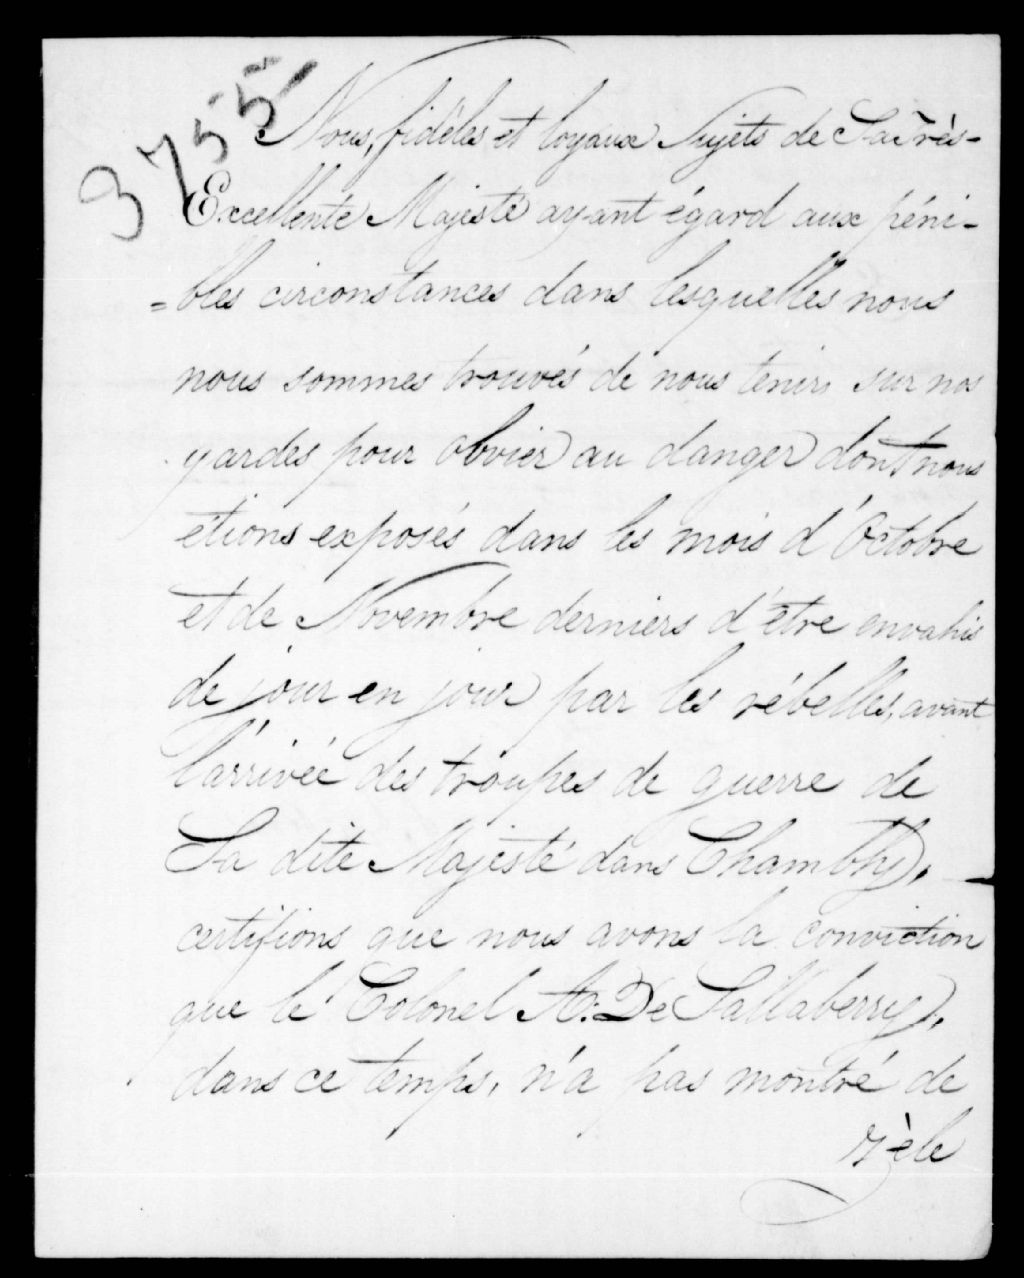 3755
Nous, fidèles et loyaux Sujets de Sa Très-
Excellente Majesté ayant égard aux péni-
=bles circonstances dans lesquelles nous
nous sommes trouvés de nous tenir sur nos
gardes pour obvier au danger dont nous
etions exposés dans les mois d'Octobre
et de Novembre derniers d'être envahis
de jour en jour par les rébelles, avant
l'arrivée des troupes de guerre de
Sa dite Majesté dans Chambly,
certifions que nous avons la conviction
que le Colonel A. De Sallaberry,
dans ce temps, n'a pas montré de
zèle